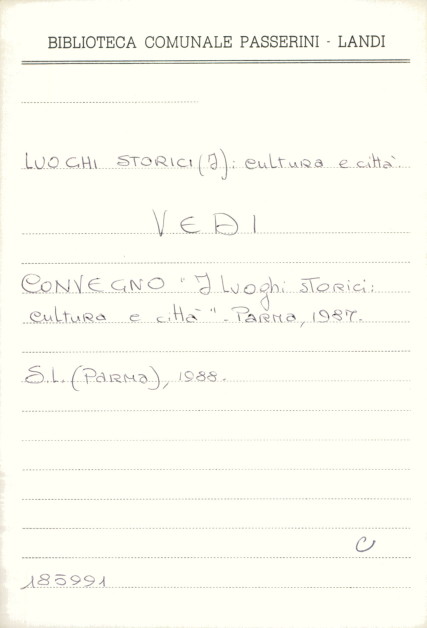 BIBLIOTECA COMUNALE PASSERINI - LANDI
LUOGHI STORICI (I): cultura e città.
VEDI
CONVEGNO "I luoghi storici:
cultura e città". - Parma, 1987.
S.l. (Parma), 1988.
C
185991